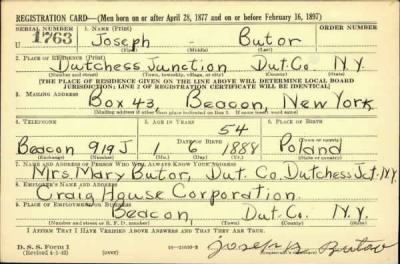 REGISTRATION CARD—(Men born on or after April 28, 1877 and on or before February 16, 1897)
SERIAL NUMBER 1. NAME (Print) ORDER NUMBER
U 1763 Joseph Butor
(First) (Middle) (Last)
2. PLACE OF RESIDENCE (Print)
Dutchess Junction Dut. Co. N.Y.
(Number and street) (Town, township, village, or city) (County) (State)
[THE PLACE OF RESIDENCE GIVEN ON THE LINE ABOVE WILL DETERMINE LOCAL BOARD
JURISDICTION; LINE 2 OF REGISTRATION CERTIFICATE WILL BE IDENTICAL]
3. MAILING ADDRESS
Box 43, Beacon, New York
[Mailing address if other than place indicated on line 2. If same insert word same]
4. TELEPHONE 5. AGE IN YEARS 6. PLACE OF BIRTH
54
Beacon 919 J DATE OF BIRTH Poland
1 6 1888 (Town or county)
(Exchange) (Number) (Mo.) (Day) (Yr.) (State or country)
7. NAME AND ADDRESS OF PERSON WHO WILL ALWAYS KNOW YOUR ADDRESS
Mrs. Mary Butor, Dut. Co. Dutchess Jct. N.Y.
8. EMPLOYER'S NAME AND ADDRESS
Craig House Corporation
9. PLACE OF EMPLOYMENT OR BUSINESS
Beacon, Dut. Co. N.Y.
(Number and street or R. F. D. number) (Town) (County) (State)
I AFFIRM THAT I HAVE VERIFIED ABOVE ANSWERS AND THAT THEY ARE TRUE.
D. S. S. Form 1
(Revised 4-1-42) (over) Joseph Butor